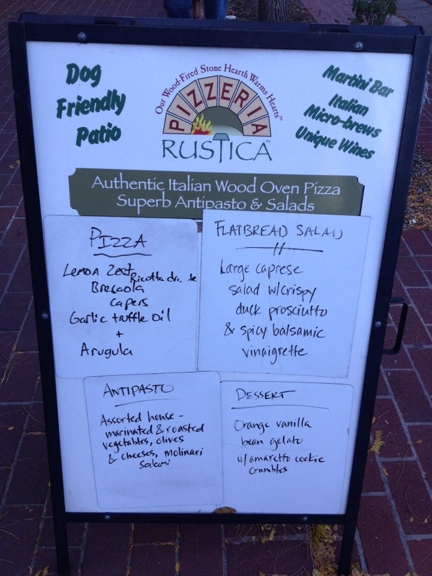 Dog
Friendly
Patio
Our Wood-Fired Stone Hearth Warms Hearts™
PIZZERIA
RUSTICA™
Martini Bar
Italian
Micro-brews
Unique Wines
Authentic Italian Wood Oven Pizza
Superb Antipasto & Salads
PIZZA
Lemon Zest
Ricotta
Bresaola
capers
Garlic truffle oil
+
Arugula
FLATBREAD SALAD
Large caprese
salad w/crispy
duck prosciutto
& spicy balsamic
vinaigrette
ANTIPASTO
Assorted house-
marinated & roasted
vegetables, olives
& cheeses, molinari
Salami
DESSERT
Orange vanilla
bean gelato
w/amaretto cookie
crumbles